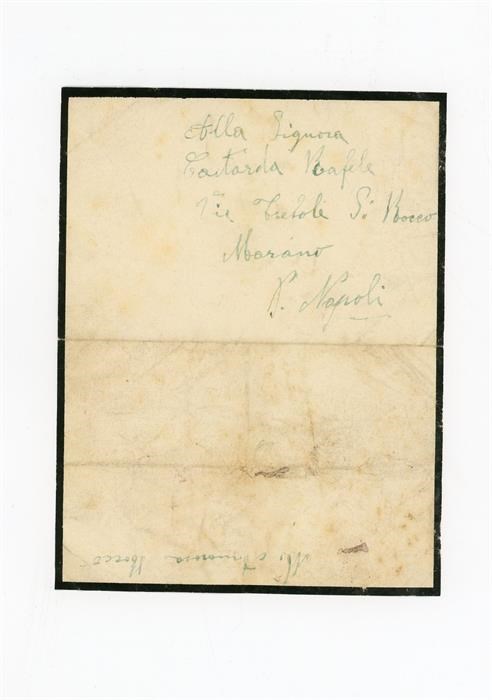 Alla Signora
Castarda Rafele
Via Tresoli S. Rocco
Marano
P. Napoli